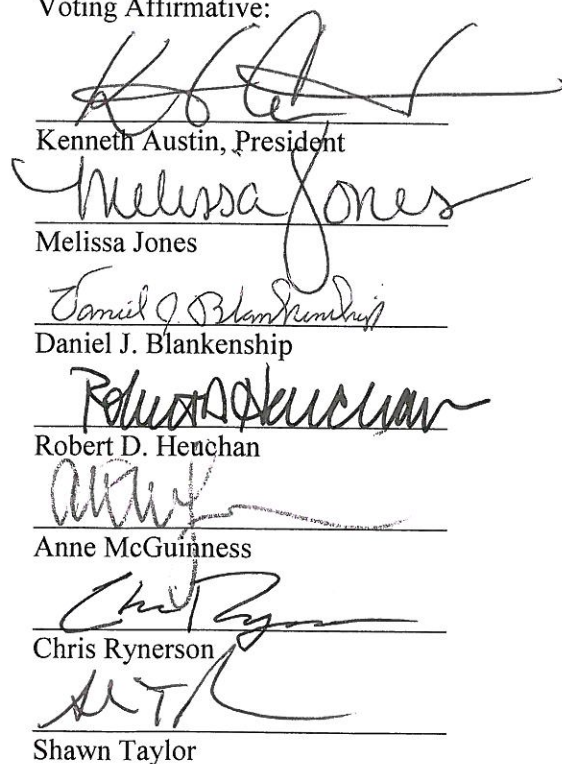 Voting Affirmative:
Kenneth Austin, President
Melissa Jones
Melissa Jones
Daniel J. Blankenship
Daniel J. Blankenship
Robert D Heuchan
Robert D. Heuchan
Anne McGuinness
Chris Rynerson
Shawn Taylor